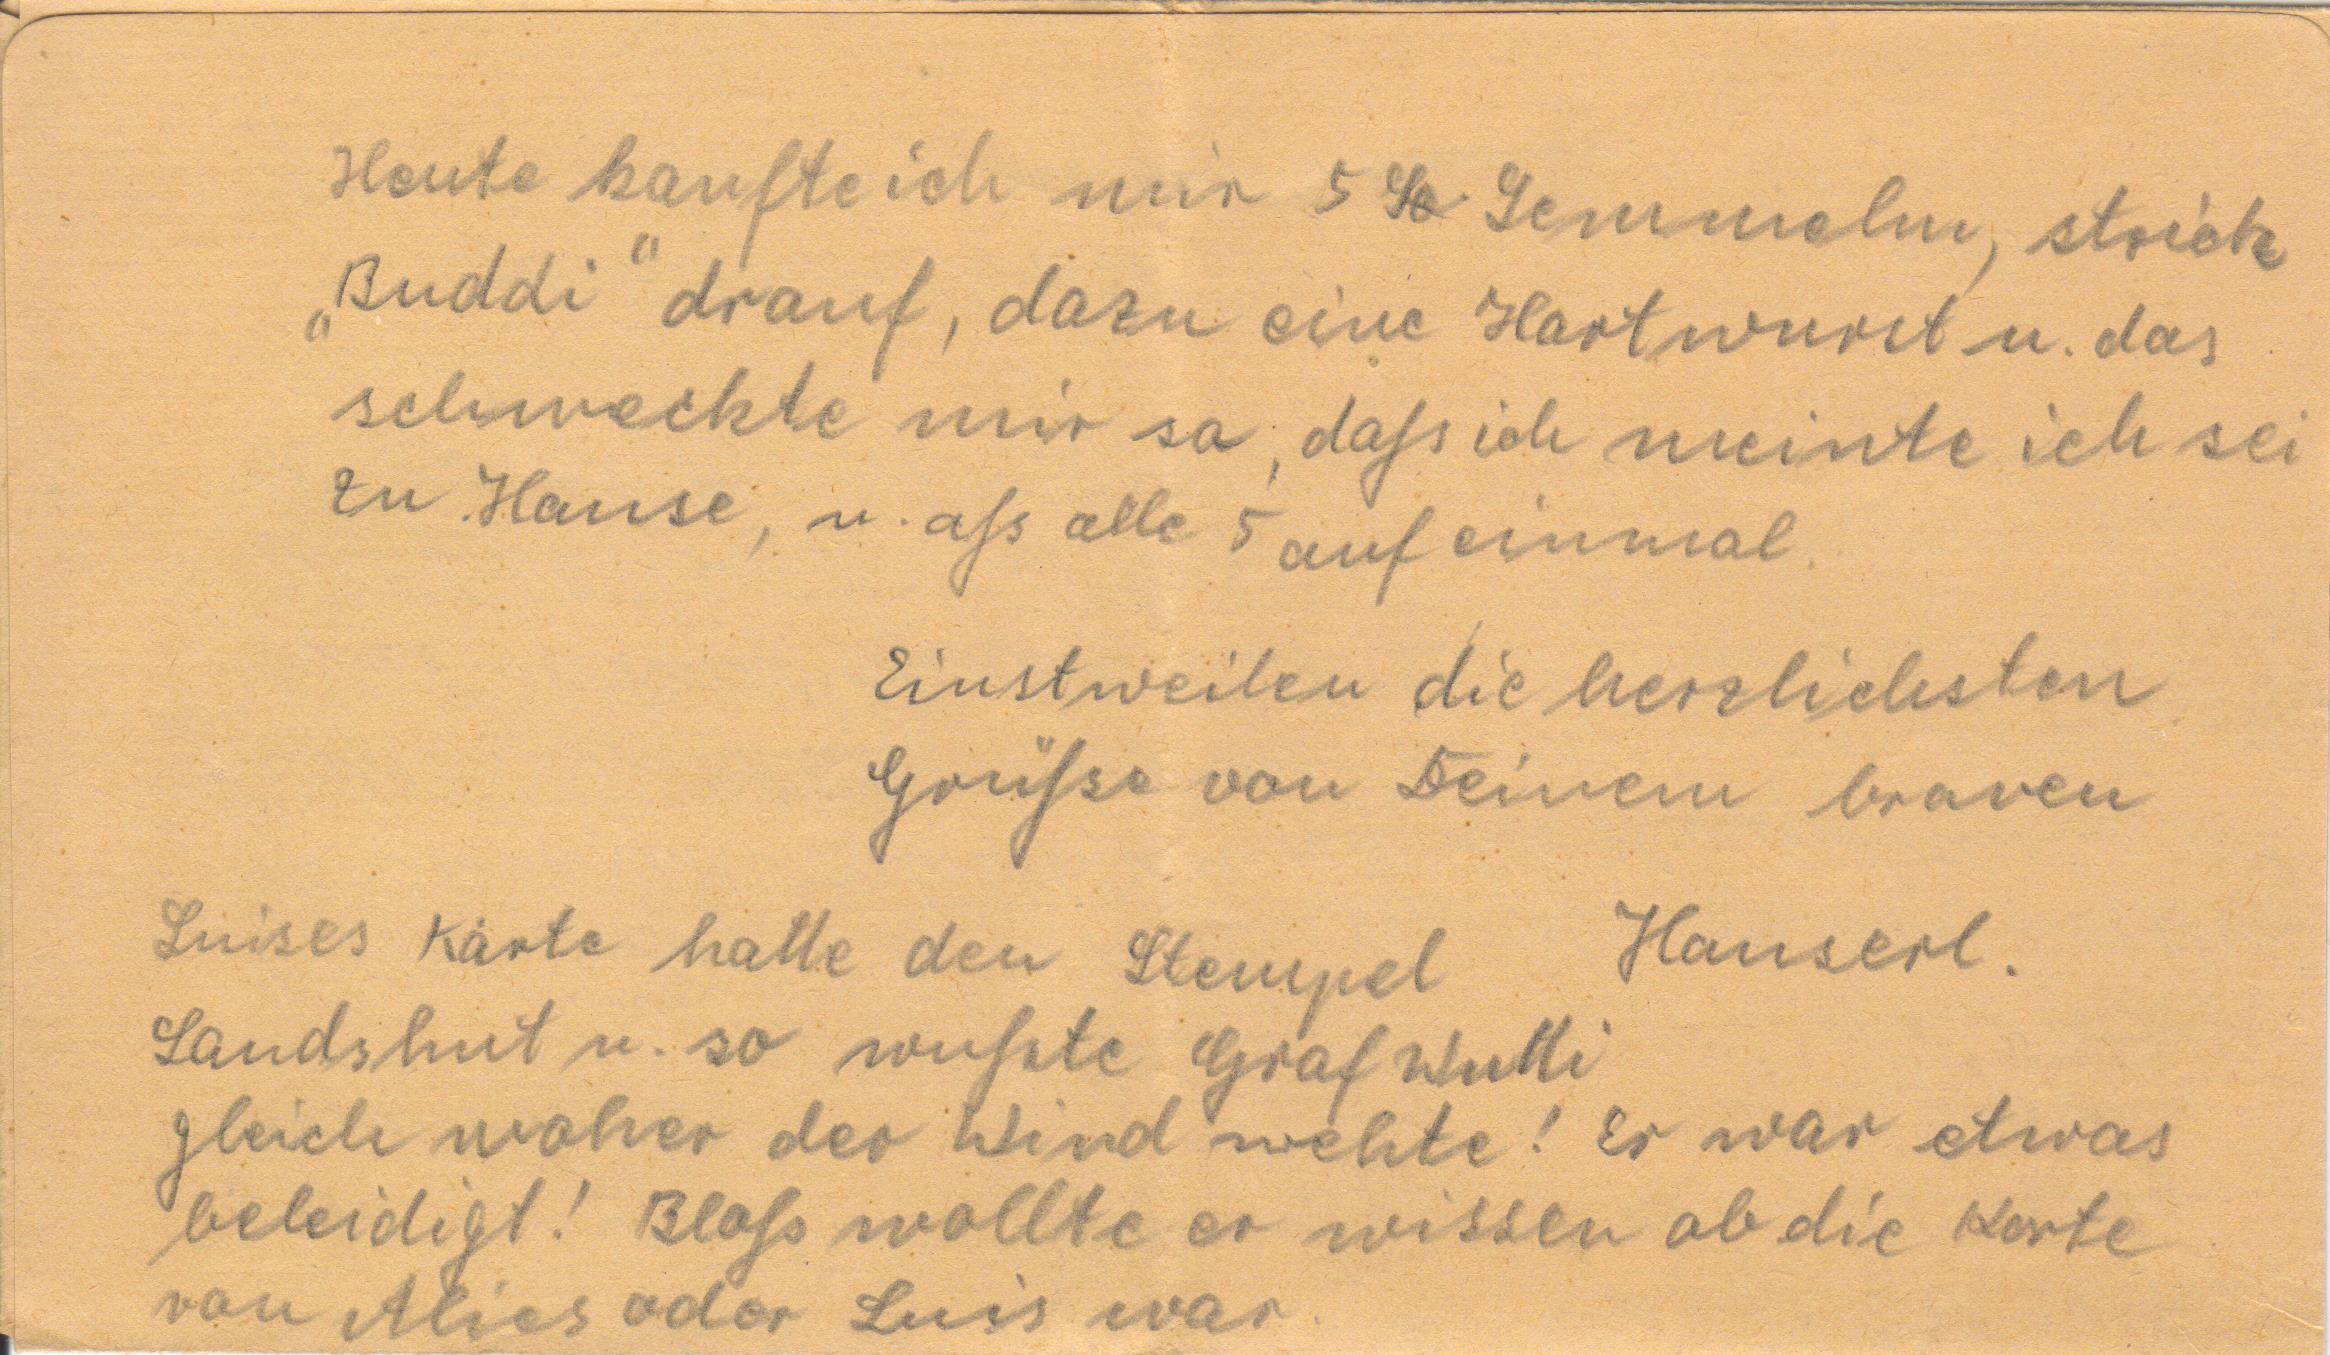 Heute kaufte ich mir 5 Se Semmeln, strich
„Buddi" drauf, dazu eine Hartwurst u. das
schmeckte mir so, dass ich meinte ich sei
zu Hause, u. ass alle 5 auf einmal.
Einstweilen die herzlichsten
Grüsse von Deinem braven
Hanserl.
Luises Karte hatte den Stempel
Landshut u. so wusste Graf Wutti
gleich woher der Wind wehte! Er war etwas
beleidigt! Bloss wollte er wissen ob die Karte
von Alies oder Luis war.